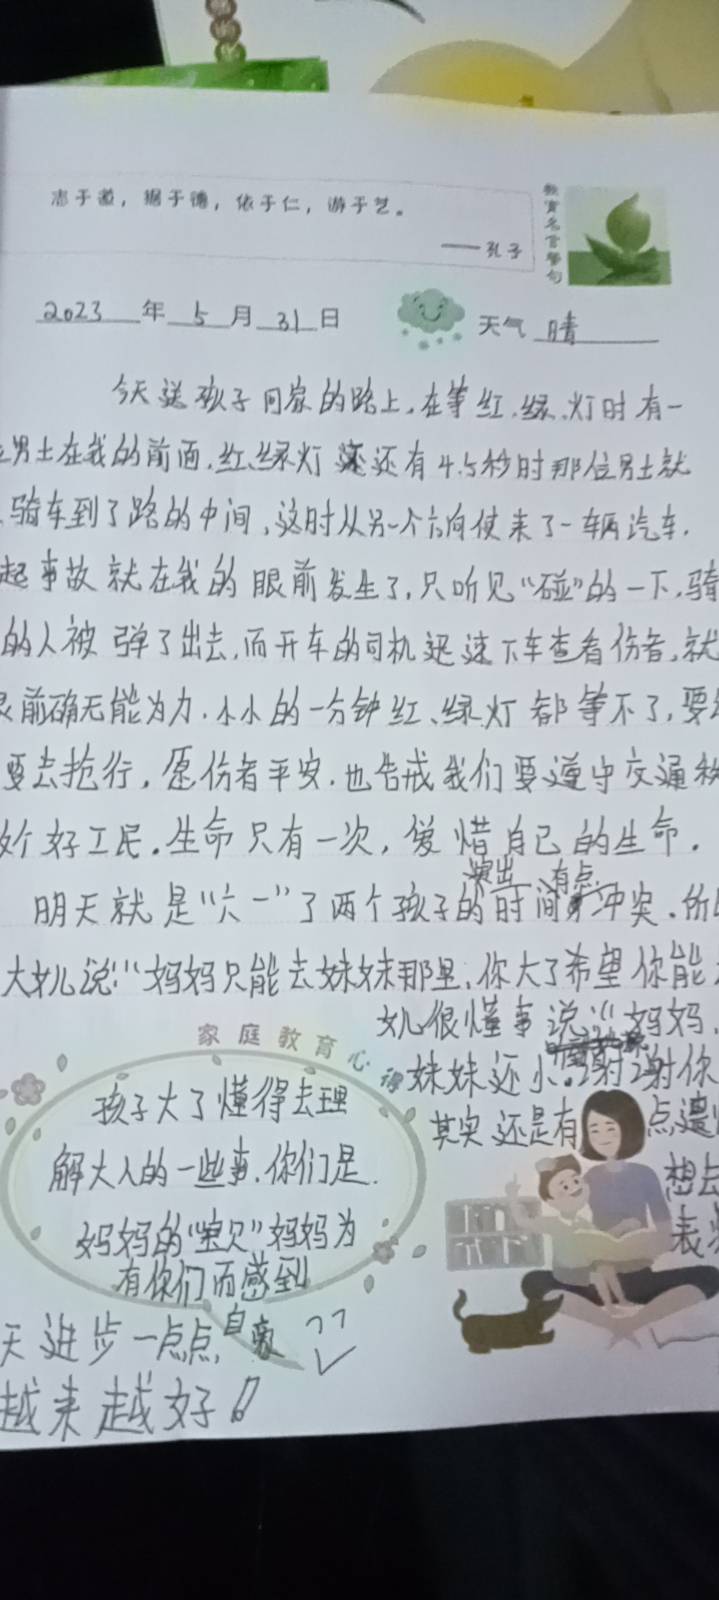 志于道，据于德，依于仁，游于艺。
——孔子
教育名言警句
2023年5月31日
天气 晴
今天送孩子回家的路上,在等红、绿、灯时有一
男士在我的前面,红、绿灯还有4.5秒时那位男士就
骑车到了路的中间,这时从另一个方向使来了一辆汽车.
起事故就在我的眼前发生了,只听见“碰”的一下,骑
的人被弹了出去,而开车的司机迅速下车查看伤者,就
前确无能为力.小小的一分钟红、绿灯都等不了,要
要去抢行,愿伤者平安.也告戒我们要遵守交通秩
个好工民.生命只有一次,爱惜自己的生命.
演出 有点
明天就是“六一”了两个孩子的时间冲突.所
大女儿说:“妈妈只能去妹妹那里,你大了希望你能
女儿很懂事说:“妈妈,
妹妹还小.谢谢你
其实还是有点遗
想去
表
家庭教育心得
孩子大了懂得去理
解大人的一些事.你们是
妈妈的“宝贝”妈妈为
有你们而感到
自豪
天进步一点点,
越来越好!